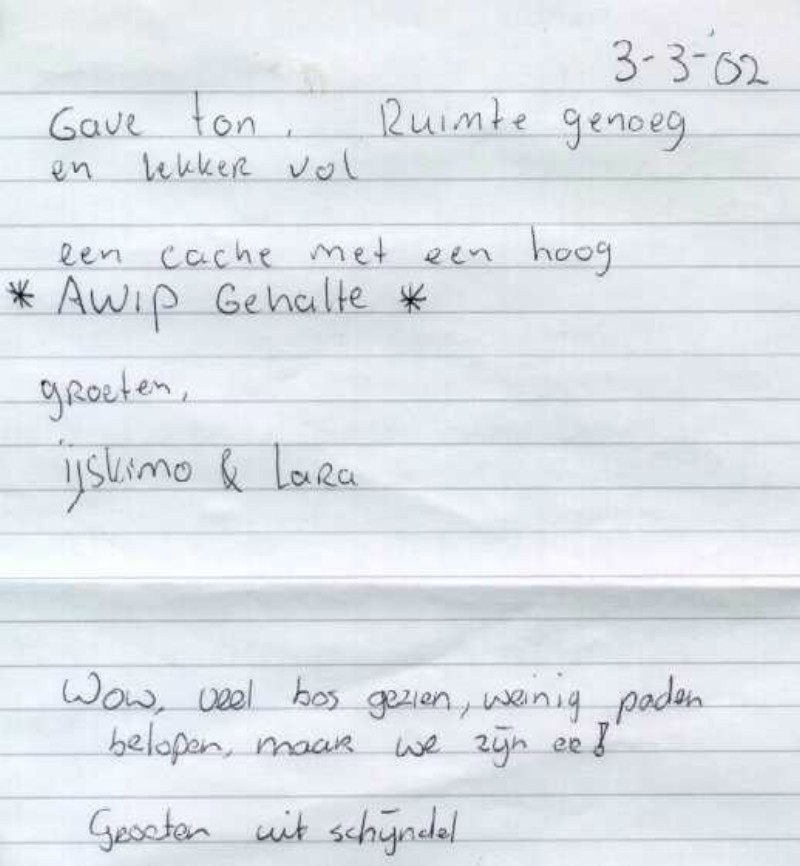 3-3-'02
Gave ton. Ruimte genoeg
en lekker vol
een cache met een hoog
* AWIP Gehalte *
groeten,
ijskimo & Lara
Wow, veel bos gezien, weinig paden
belopen, maar we zijn er!
Groeten uit schijndel